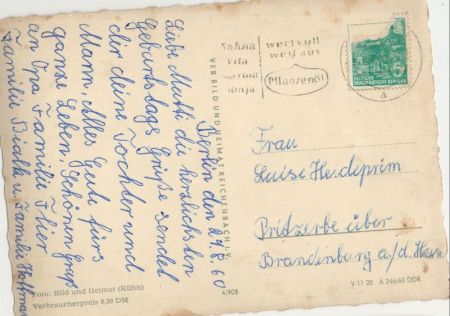 Berlin den 29.8.60
Liebe Mutti die herzlichsten
Geburtstags Grüße sendet
dir deine Tochter und
Mann. Alles Gute fürs
ganze Leben. Schönen Gruß
an Opa Familie
Familie u. Familie Hoffman
Sahna
Vita
Marina
Sonja
wertvoll
weil aus
Pflanzenöl
DEUTSCHE
DEMOKRATISCHE REPUBLIK
5
a
VEB BILD UND HEIMAT REICHENBACH I. V.
Frau
Luise Heideprim
Pritzerbe über
Brandenburg a/d. Havel
Foto: Bild und Heimat (Kühn)
Verbraucherpreis 0,20 DM
4/908
V 11 28 A 246/60 DDR